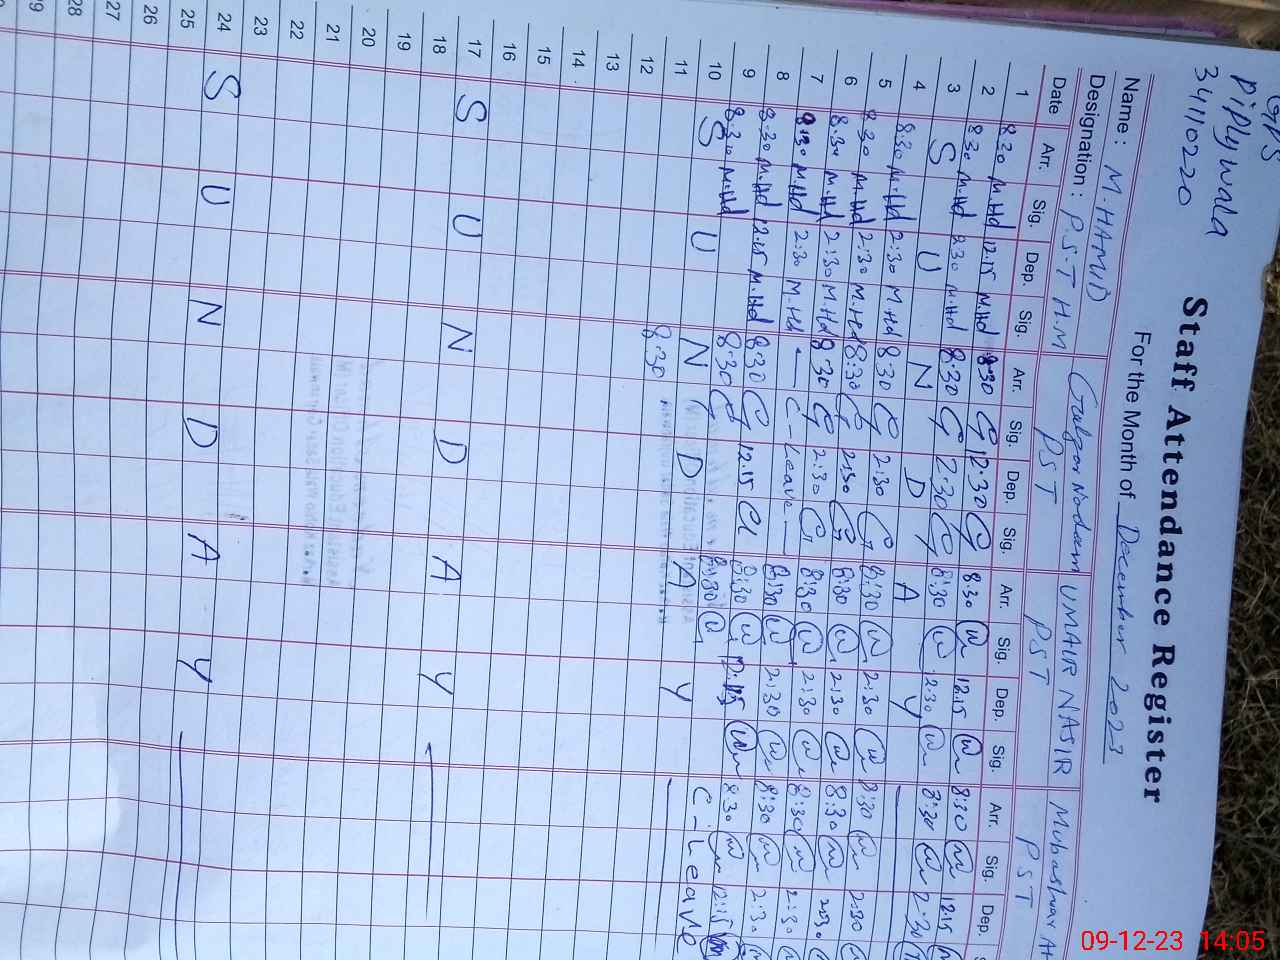 GPS
Piplywala
34110220
Staff Attendance Register
For the Month of December 2023
Name : M.HAMID UMAIR NASIR
Designation : P.S.T H.M PST PST PST
Date Arr. Sig. Dep. Sig. Arr. Sig. Dep. Sig. Arr. Sig. Dep. Sig. Arr. Sig. Dep.
1 8:30 M.Hd 12.15 M.Hd 8:30 12:30 8:30 12.15 8:30 12.15
2 8:30 M.Hd 2:30 M.Hd 8:30 2:30 8:30 2:30 8:30 2:30
3 S U N D A Y
4 8:30 M.Hd 2:30 M.Hd 8:30 2:30 8:30 2:30 8:30 2:30
5 8:30 M.Hd 2:30 M.Hd 8:30 2:30 8:30 2:30 8:30 2:30
6 8:30 M.Hd 2:30 M.Hd 8:30 2:30 8:30 2:30 8:30 2:30
7 8:30 M.Hd 2:30 M.Hd C-Leave 8:30 2:30 8:30 2:30
8 8:30 M.Hd 12.15 M.Hd 8:30 12.15 8:30 12.15 8:30 12:15
9 8:30 M.Hd 8:30 8:30 C-Leave
10 S U N D A Y
11 8:30
12
13
14
15
16
17 S U N D A Y
18
19
20
21
22
23
24 S U N D A Y
25
26
27
28
29
09-12-23 14:05